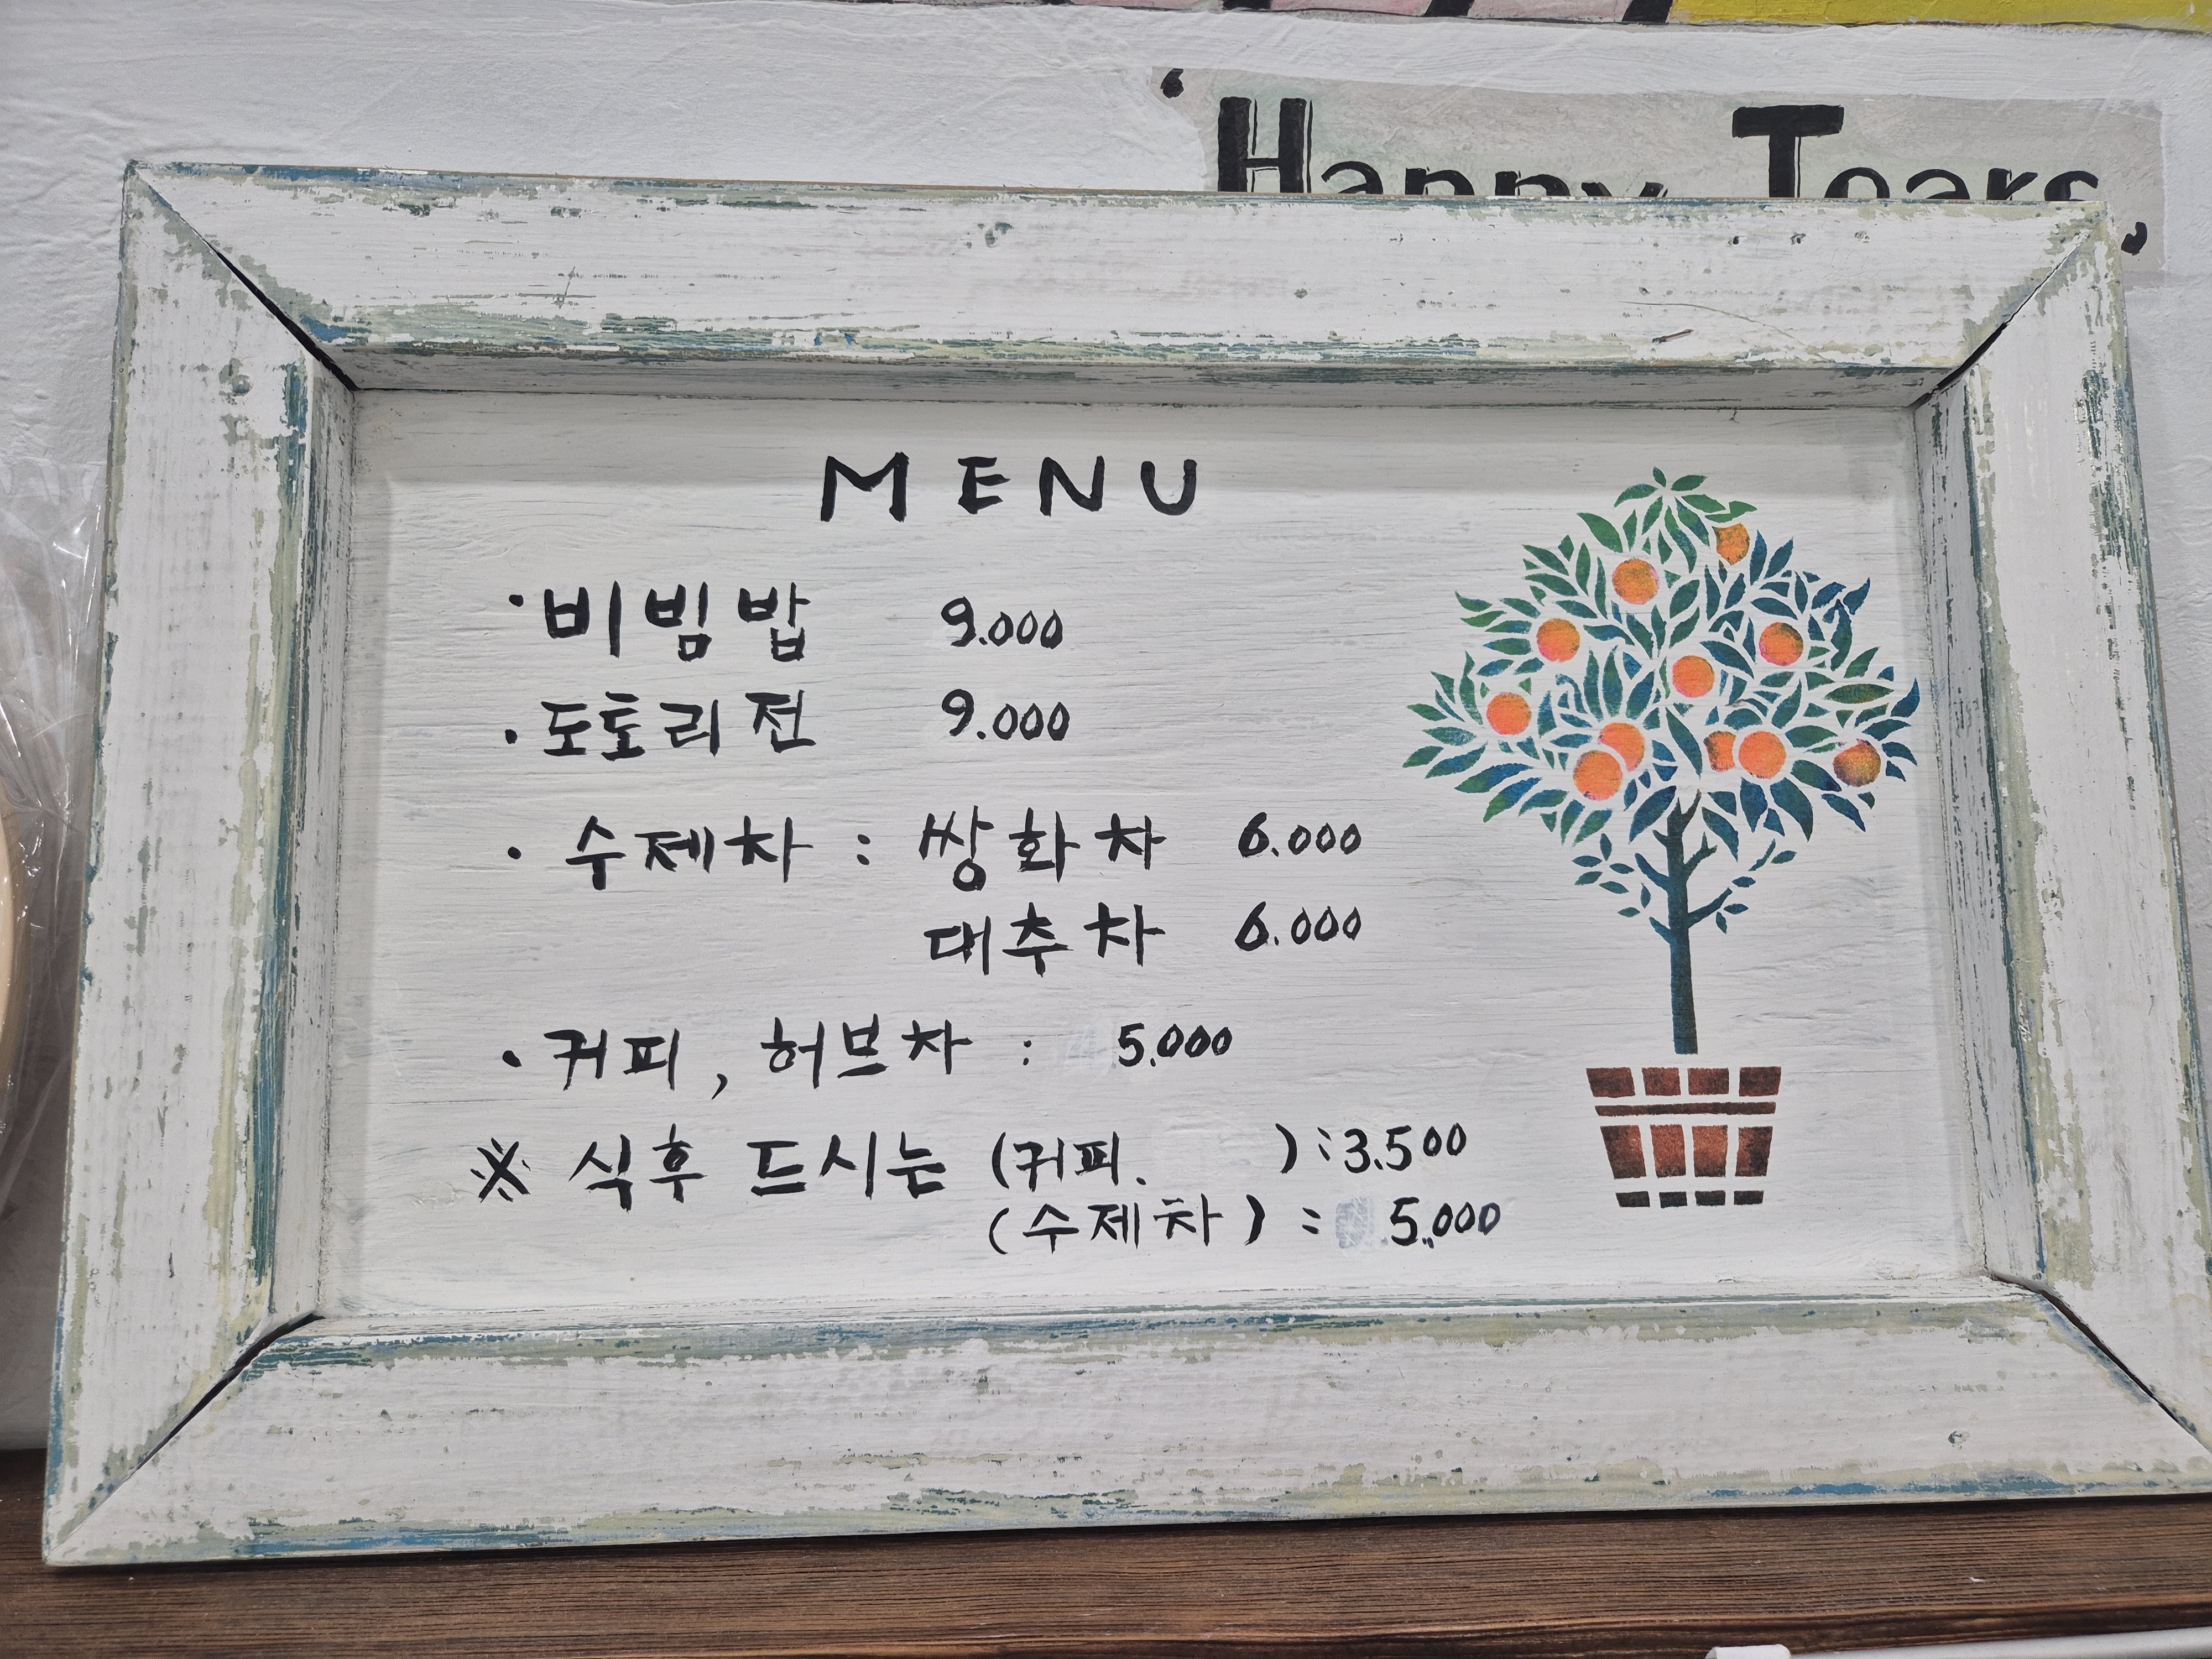 ‘Happy Tears’
MENU
·비빔밥 9.000
·도토리전 9.000
· 수제차 : 쌍화차 6.000
대추차 6.000
·커피, 허브차 : 5.000
※ 식후 드시는 (커피. ) : 3.500
(수제차) : 5.000